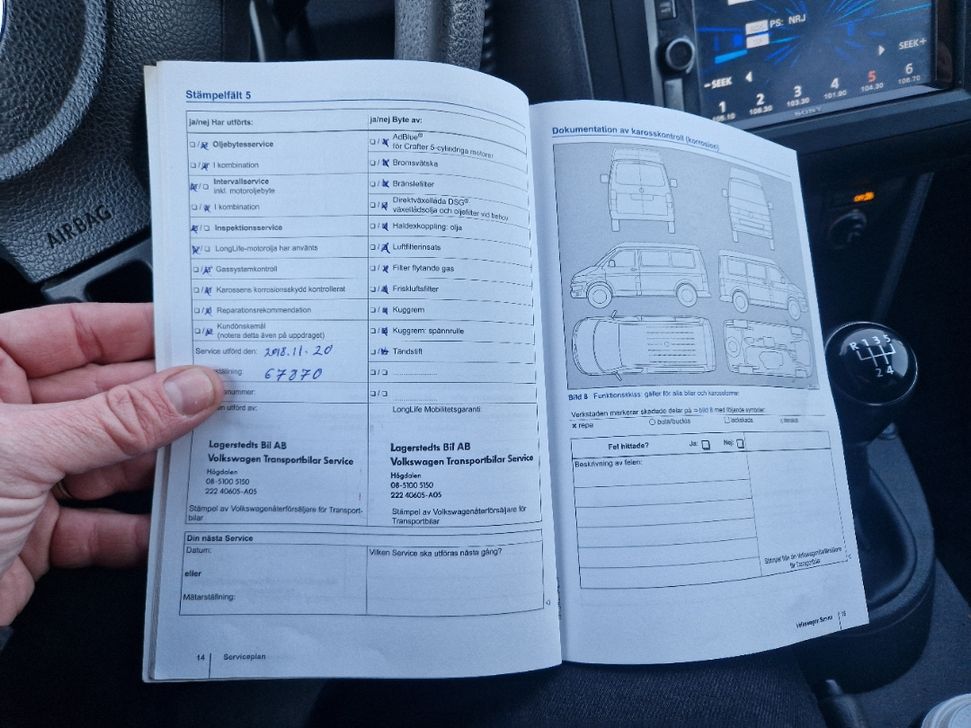 PS: NRJ
SEEK+
-SEEK
1 2 3 4 5 6
103.30 101.90 104.30 106.70
SONY
AIRBAG
R 1 3 5
2 4
Stämpelfält 5
ja/nej Har utförts:
Oljebytesservice
I kombination
Intervallservice
inkl. motoroljebyte
I kombination
Inspektionsservice
LongLife-motorolja har använts
Gassystemkontroll
Karossens korrosionsskydd kontrollerat
Reparationsrekommendation
Kundönskemål
(notera detta även på uppdraget)
Service utförd den: 2018.11.20
ställning: 67870
nummer:
utförd av:
Lagerstedts Bil AB
Volkswagen Transportbilar Service
Högdalen
08-5100 5150
222 40605-A05
Stämpel av Volkswagenåterförsäljare för Transport-
bilar
ja/nej Byte av:
AdBlue®
för Crafter 5-cylindriga motorer
Bromsvätska
Bränslefilter
Direktväxellåda DSG®:
växellådsolja och oljefilter vid behov
Haldexkoppling: olja
Luftfilterinsats
Filter flytande gas
Friskluftsfilter
Kuggrem
Kuggrem: spännrulle
Tändstift
LongLife Mobilitetsgaranti:
Lagerstedts Bil AB
Volkswagen Transportbilar Service
Högdalen
08-5100 5150
222 40605-A05
Stämpel av Volkswagenåterförsäljare för
Transportbilar
Din nästa Service
Datum:
eller
Mätarställning:
Vilken Service ska utföras nästa gång?
14 Serviceplan
Dokumentation av karosskontroll (korrosion)
Bild 8 Funktionsskiss: gäller för alla bilar och karossformer
Verkstaden markerar skadade delar på ⇒ bild 8 med följande symboler:
x repa
bula/buckla
lackskada
Fel hittade? Ja: Nej:
Beskrivning av felen:
Stämpel från din Volkswagenåterförsäljare
för Transportbilar
Volkswagen Service 15